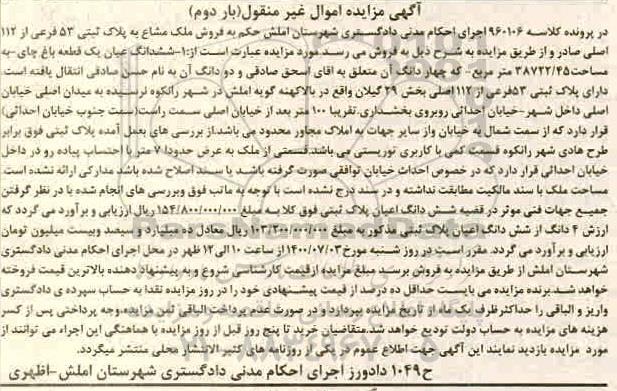 آگهی مزایده اموال غیر منقول(بار دوم)
در پرونده کلاسه ۹۶۰۱۰۶ اجرای احکام مدنی دادگستری شهرستان املش حکم به فروش ملک مشاع به پلاک ثبتی ۵۳ فرعی از ۱۱۲
اصلی صادر و از طریق مزایده به شرح ذیل به فروش می رسد مورد مزایده عبارت است از:۱-ششدانگ عیان یک قطعه باغ چای-به
مساحت۳۸۷۲۲/۴۵ متر مربع- که چهار دانگ آن متعلق به اقای اسحق صادقی و دو دانگ آن به نام حسن صادقی انتقال یافته است.
دارای پلاک ثبتی ۵۳فرعی از ۱۱۲اصلی بخش ۲۹ گیلان واقع در بالاکهنه گویه املش در شهر رانکوه نرسیده به میدان اصلی خیابان
اصلی داخل شهر-خیابان احداثی روبروی بخشداری.تقریبا ۱۰۰ متر بعد از خیابان اصلی سمت راست(سمت جنوب خیابان احداثی)
قرار دارد که از سمت شمال به خیابان واز سایر جهات به املاک مجاور محدود می باشد.از بررسی های بعمل آمده پلاک ثبتی فوق برابر
طرح هادی شهر رانکوه قسمت کمی با کاربری توریستی می باشد.قسمتی از ملک به عرض حدودا ۷ متر با احتساب پیاده رو در داخل
خیابان احداثی قرار دارد که در خصوص احداث خیابان توافقی صورت گرفته باشد یا سند اصلاح شده باشد مدارکی ارائه نشده است.
مساحت ملک با سند مالکیت مطابقت نداشته و در سند درج نشده است با توجه به ماتب فوق وبررسی های انجام شده یا در نظر گرفتن
جمیع جهات فنی موثر در قضیه شش دانگ اعیان پلاک ثبتی فوق کلا به مبلغ ۱۵۴/۸۰۰/۰۰۰/۰۰۰ ریال ارزیابی و برآورد می گردد که
ارزش ۴ دانگ از شش دانگ اعیان پلاک ثبتی مذکور به مبلغ ۱۰۳/۲۰۰/۰۰۰/۰۰۰ ریال معادل ده میلیارد و سیصد وبیست میلیون تومان
ارزیابی و برآورد می گردد. مقرر است در روز شنبه مورخ ۱۴۰۰/۰۷/۰۳ از ساعت ۱۰ الی ۱۲ ظهر در محل اجرای احکام مدنی دادگستری
شهرستان املش از طریق مزایده به فروش برسد مبلغ مزایده ازقیمت کارشناسی شروع و به پیشنهاد دهنده بالاترین قیمت فروخته
خواهد شد.برنده مزایده می بایست حداقل ده درصد از قیمت پیشنهادی خود را در روز مزایده نقدا به حساب سپرده ی دادگستری
واریز و الباقی را حداکثرظرف یک ماه از تاریخ مزایده بپردازد و در صورت عدم پرداخت الباقی ثمن مزایده،وجه پرداختی پس از کسر
هزینه های مزایده به حساب دولت تودیع خواهد شد.متقاضیان خرید تا پنج روز قبل از روز مزایده با هماهنگی این اجراء می توانند از
مورد مزایده بازدید نمایند این آگهی جهت اطلاع عموم در یکی از روزنامه های کثیر الانتشار محلی منتشر میگردد.
ح۱۰۴۹ دادورز اجرای احکام مدنی دادگستری شهرستان املش-اظهری